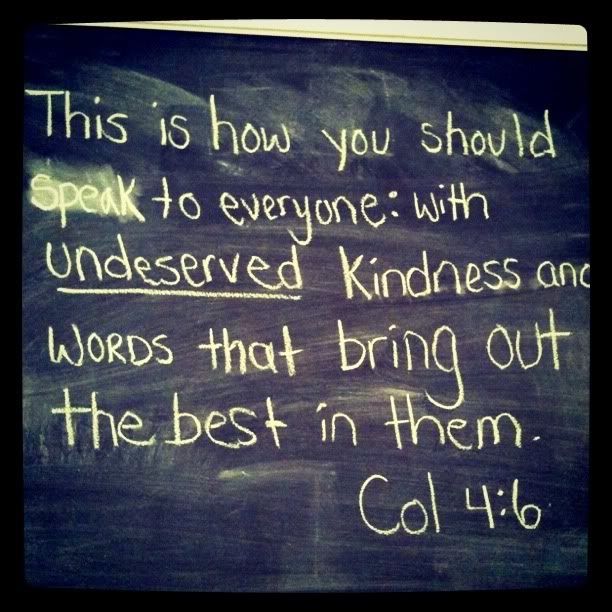 This is how you should
speak to everyone: with
undeserved kindness and
WORDS that bring out
the best in them.
Col 4:6